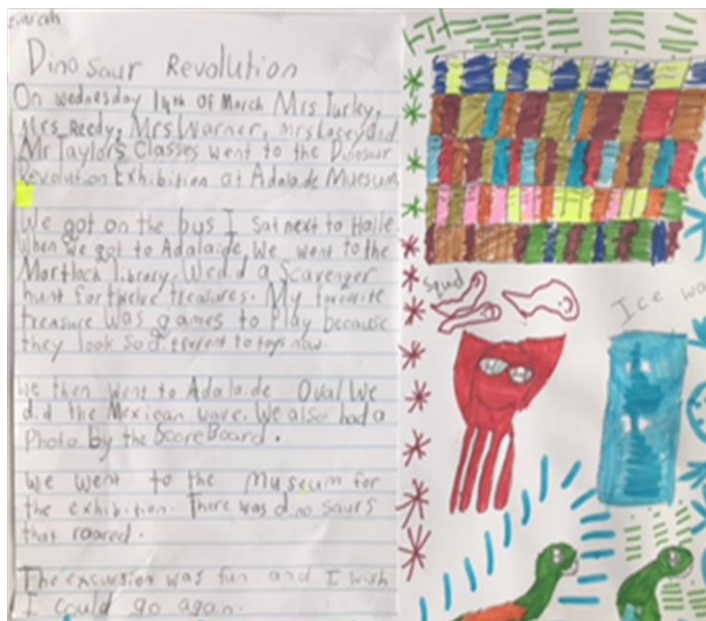 Dinosaur Revolution
On wednesday 14th of March Mrs Turley,
Mrs Reedy, Mrs Warner, mrs Lacey and
Mr Taylors Classes went to the Dinosaur
Revolution Exhibition at Adalaide Muesum
We got on the bus I sat next to Haile.
When we got to Adalaide We went to the
Mortlock library. We did a Scavenger
hunt for twelve treasures. My favorite
treasure was games to Play because
they look so different to toys now.
We then went to Adalaide Oval We
did the Mexican wave. We also had a
Photo by the ScoreBoard.
We went to the Museum for
the exhibition. There was dino saurs
that roared.
The excursion was fun and I wish
I could go again.
squid
Ice